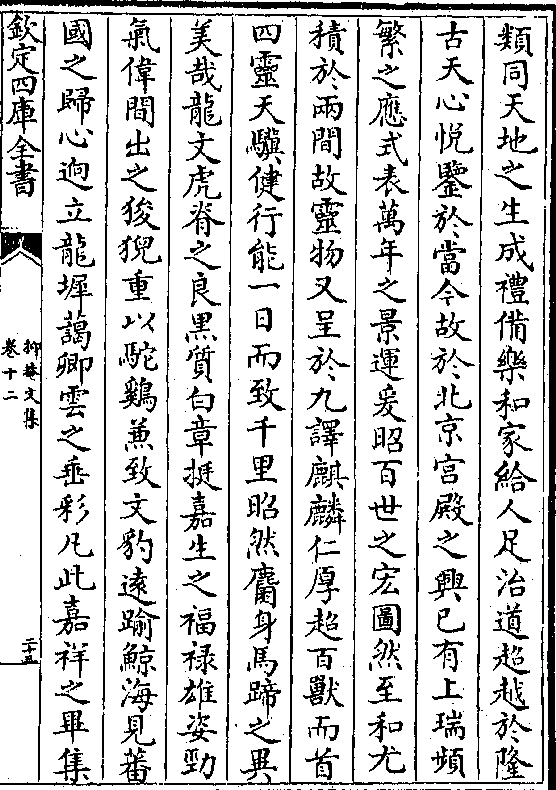 類同天地之生成禮備樂和家給人足治道超越於隆
古天心悅鑒於當今故於北京宫殿之興已有上瑞頻
繁之應式表萬年之景運爰昭百世之宏圖然至和尤
積於兩間故靈物又呈於九譯麒麟仁厚超百獸而首
四靈天驥健行能一日而致千里昭然麕身馬蹄之異
美哉龍文虎脊之良黒質白章挺嘉生之福禄雄姿勁
氣偉間出之狻猊重以駝鷄兼致文豹遠踰鯨海見蕃
國之歸心逈立龍墀藹卿雲之垂彩凡此嘉祥之畢集
欽定四庫全書
抑菴文集
卷十二
二十五